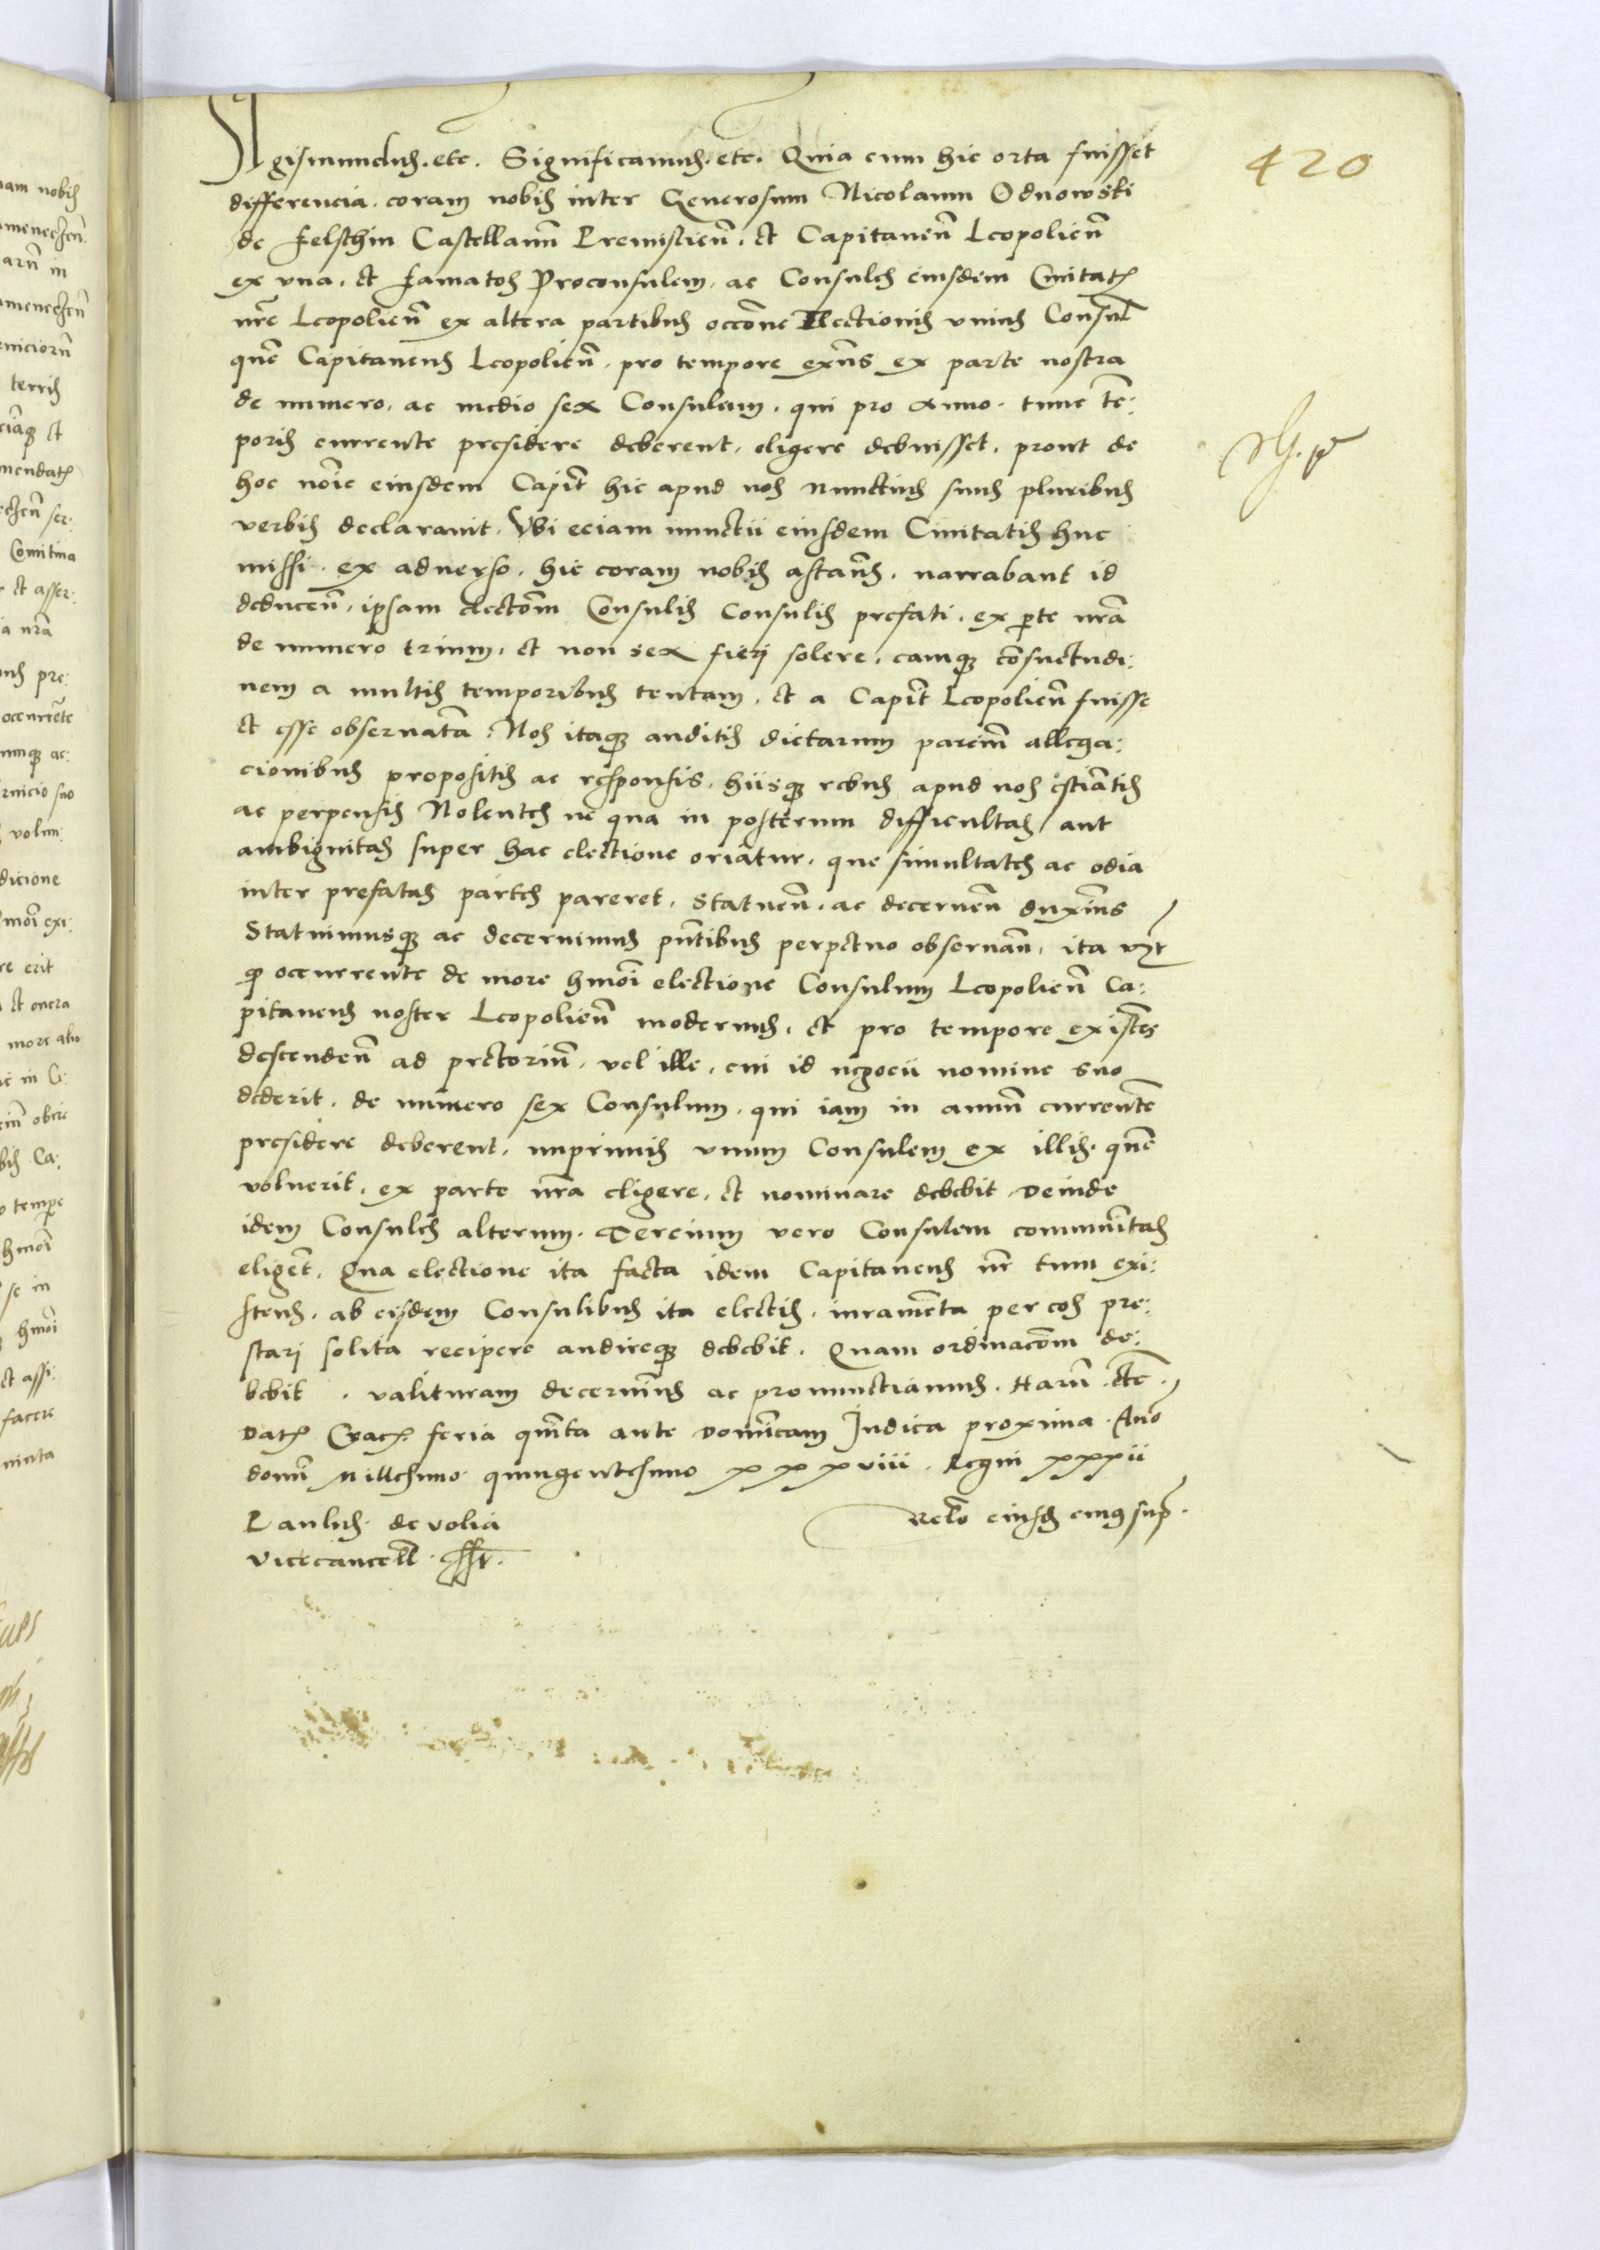 420
Sigismundus. etc. Significamus. etc. Quia cum hic orta fuisset
differencia. coram nobis inter Generosum Nicolaum Odnowski
de Felschin Castellanũ Premislieñ. et Capitaneũ Leopolieñ
ex vna. et Famatos Proconsulem. ac Consules eiusdem Ciuitatis
nr̃e Leopolieñ ex altera partibus occõne Electionis vnius Consul̃
quẽ Capitaneus Leopolieñ. pro tempore exñs ex parte nostra
de numero. ac medio sex Consulum. qui pro Anno. tunc tẽ:
poris currente presidere deberent. eligere debuisset. prout de
hoc noĩe eiusdem Capit̃ hic apud nos Nunctius suus pluribus
verbis declarauit. Vbi eciam nunctii eiusdem Ciuitatis huc
missi. ex aduerso. hic coram nobis astañs. narrabant id
deduceñ. ipsam electõm Consulis Consulis prefati. ex ꝑte nrã
de numero trium. et non sex fierj solere. eamqꝫ cõsuetudi:
nem a multis temporibus tentam. et a Capit̃ Leopolieñ fuisse
et esse obseruatã. Nos itaqꝫ auditis dictarum parciũ allega:
cionibus propositis ac responsis. hiisqꝫ rebus apud nos
ac perpensis Nolentes ne qua in posterum difficultas aut
ambiguitas super hac electione oriatur. que simultates ac odia
inter prefatas partes pareret. Statueñ. ac decerneñ duximus
Statuimusqꝫ ac decernimus pñtibus perpetuo obseruañ. ita vꝫt
qꝫ occurrente de more hmõi electione Consulum Leopolieñ Ca:
pitaneus noster Leopolieñ modernus. et pro tempore existẽs
descendeñ ad pretoriũ. vel ille. cui id negocii nomine suo
dederit. de numero sex Consulum. qui iam in annũ currentẽ
presidere deberent. inprimis vnum Consulem ex illis. quẽ
voluerit. ex parte nrã eligere. et nominare debebit. Deinde
idem Consules alterum. Tercium vero Consulem communitas
eliget̃. Qua electione ita facta idem Capitaneus nr̃ tum exi:
stens. ab eisdem Consulibus ita electis. iuramẽta per eos pre:
starj solita recipere audireqꝫ debebit. Quam ordinacõm de:
bebit. valituram decernimus ac pronunctiamus. Harũ etc̃.
Datꝫ Cracꝫ feria quĩta ante Domĩcam Iudica proxima. Anõ
domĩ Millesimo quingentesimo xxxviii. Regni xxxii
Relõ eiusdẽ cuius sup̃.
Paulus de Volia
Vicecancell̃. sst.